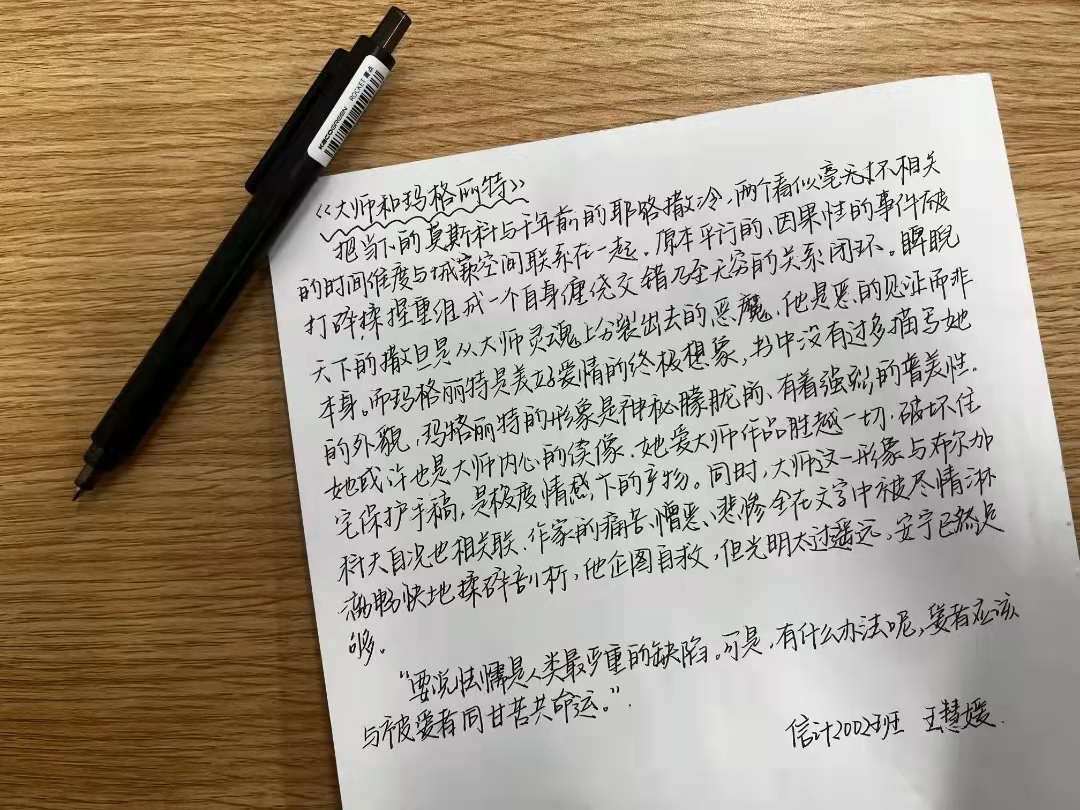 KACOGREEN ROCKET 重点
《大师和玛格丽特》
把当下的莫斯科与千年前的耶路撒冷,两个看似毫无相关
的时间维度与城寨空间联系在一起。原本平行的、因果性的事件被
打碎揉捏重组成一个自身缠绕交错乃至无穷的关系闭环。睥睨
天下的撒旦是从大师灵魂上分裂出去的恶魔,他是恶的见证而非
本身。而玛格丽特是美好爱情的终极想象,书中没有过多描写她
的外貌,玛格丽特的形象是神秘朦胧的、有着强烈的普美性.
她或许也是大师内心的续像.她爱大师作品胜越一切.破坏住
宅保护手稿,是极度情感下的产物。同时,大师这一形象与布尔加
科夫自况也相关联.作家的痛苦、憎恶、悲惨全在文字中被尽情淋
漓畅快地揉碎剖析,他企图自救,但光明太过遥远,安宁已然足
够。
"要说怯懦是人类最严重的缺陷。可是,有什么办法呢,爱者应该
与被爱者同甘苦共命运。"
信计2002班 王慧媛